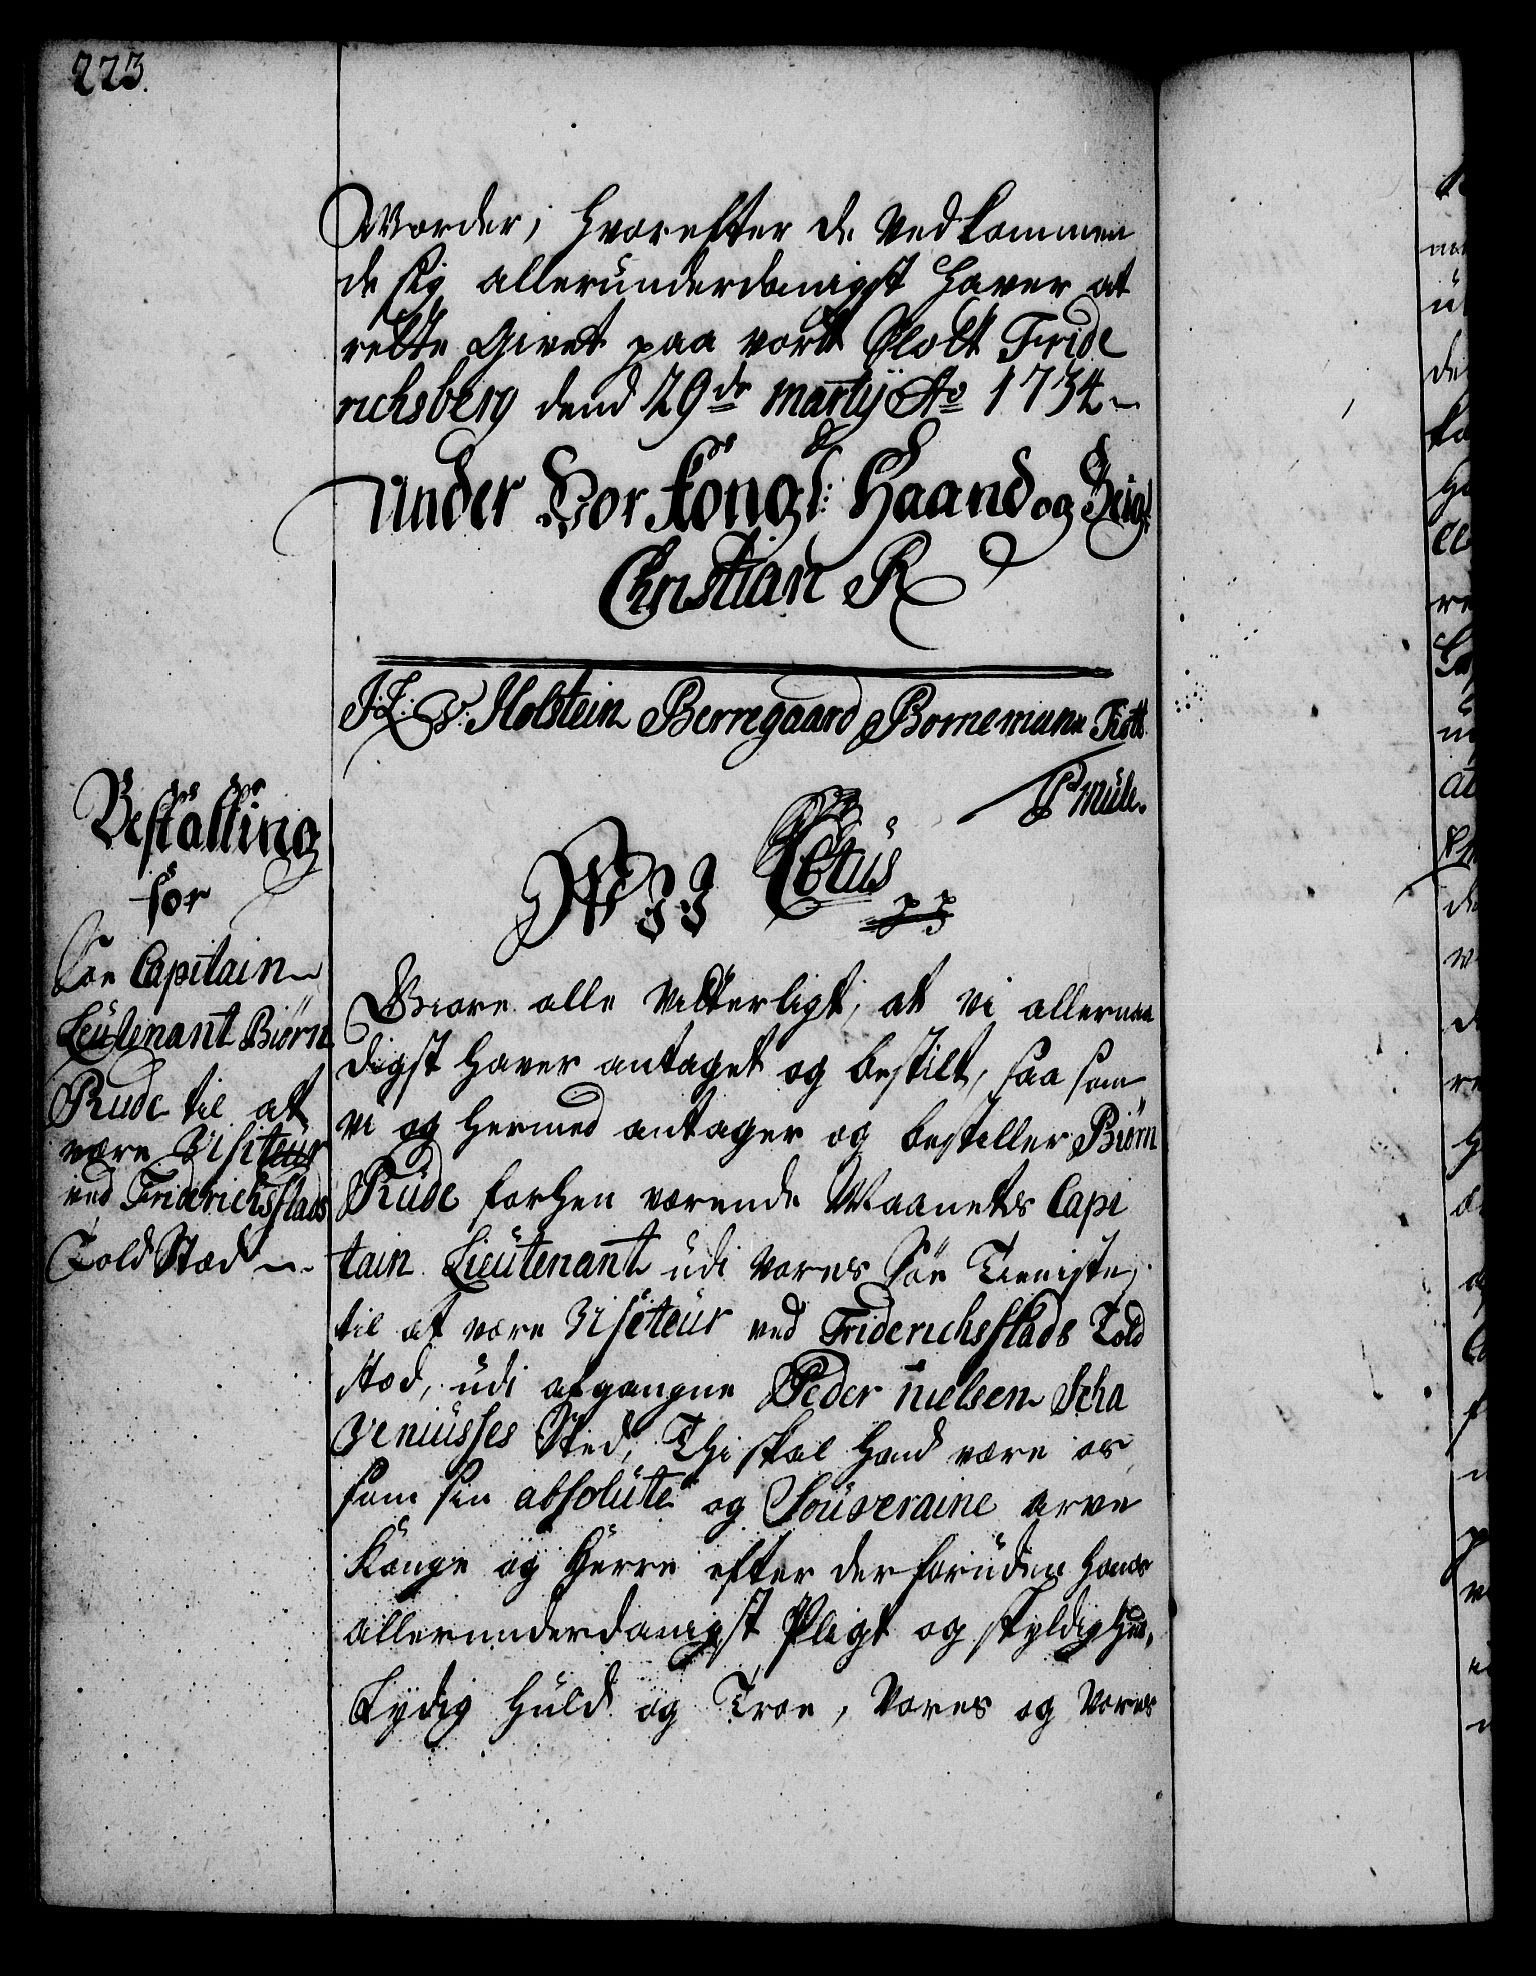 223.
Worder, hvorefter de vedkommen
de sig allerunderdanigst haver at
rette Givet paa vort Slott Fride
richsberg dend 29de Martij Ao 1734
Under Vor Kongl: Haand og Zeigl
Christian R
J: L: v: Holstein Berregaard Bornemann Fiott
P Müle.
Bestalling
for
Søe Capitain
Leutenant Biørn
Rude til at
være Visiteur
ved Friderichsstads
Told Stæd
Totus
pp
Giøre alle Vitterligt, at vi allernaa
digst haver antaget og bestilt, saa som
vi og hermed antager og bestiller Biørn
Rüde forhen værende Maanets Capi
tain Lieutenant udi Vores Søe Tieniste,
til at være Visiteur ved Friderichsstads Told
stæd, udi afgangne Peder Nielsen Scha
veniusses Sted, Thi skal hand være os
som sin absolute og Souveraine arve
Konge og Herre efter der foruden hands
allerunderdanigst Pligt og skyldighed,
Lydig Huld og Troe, Vores og Vores